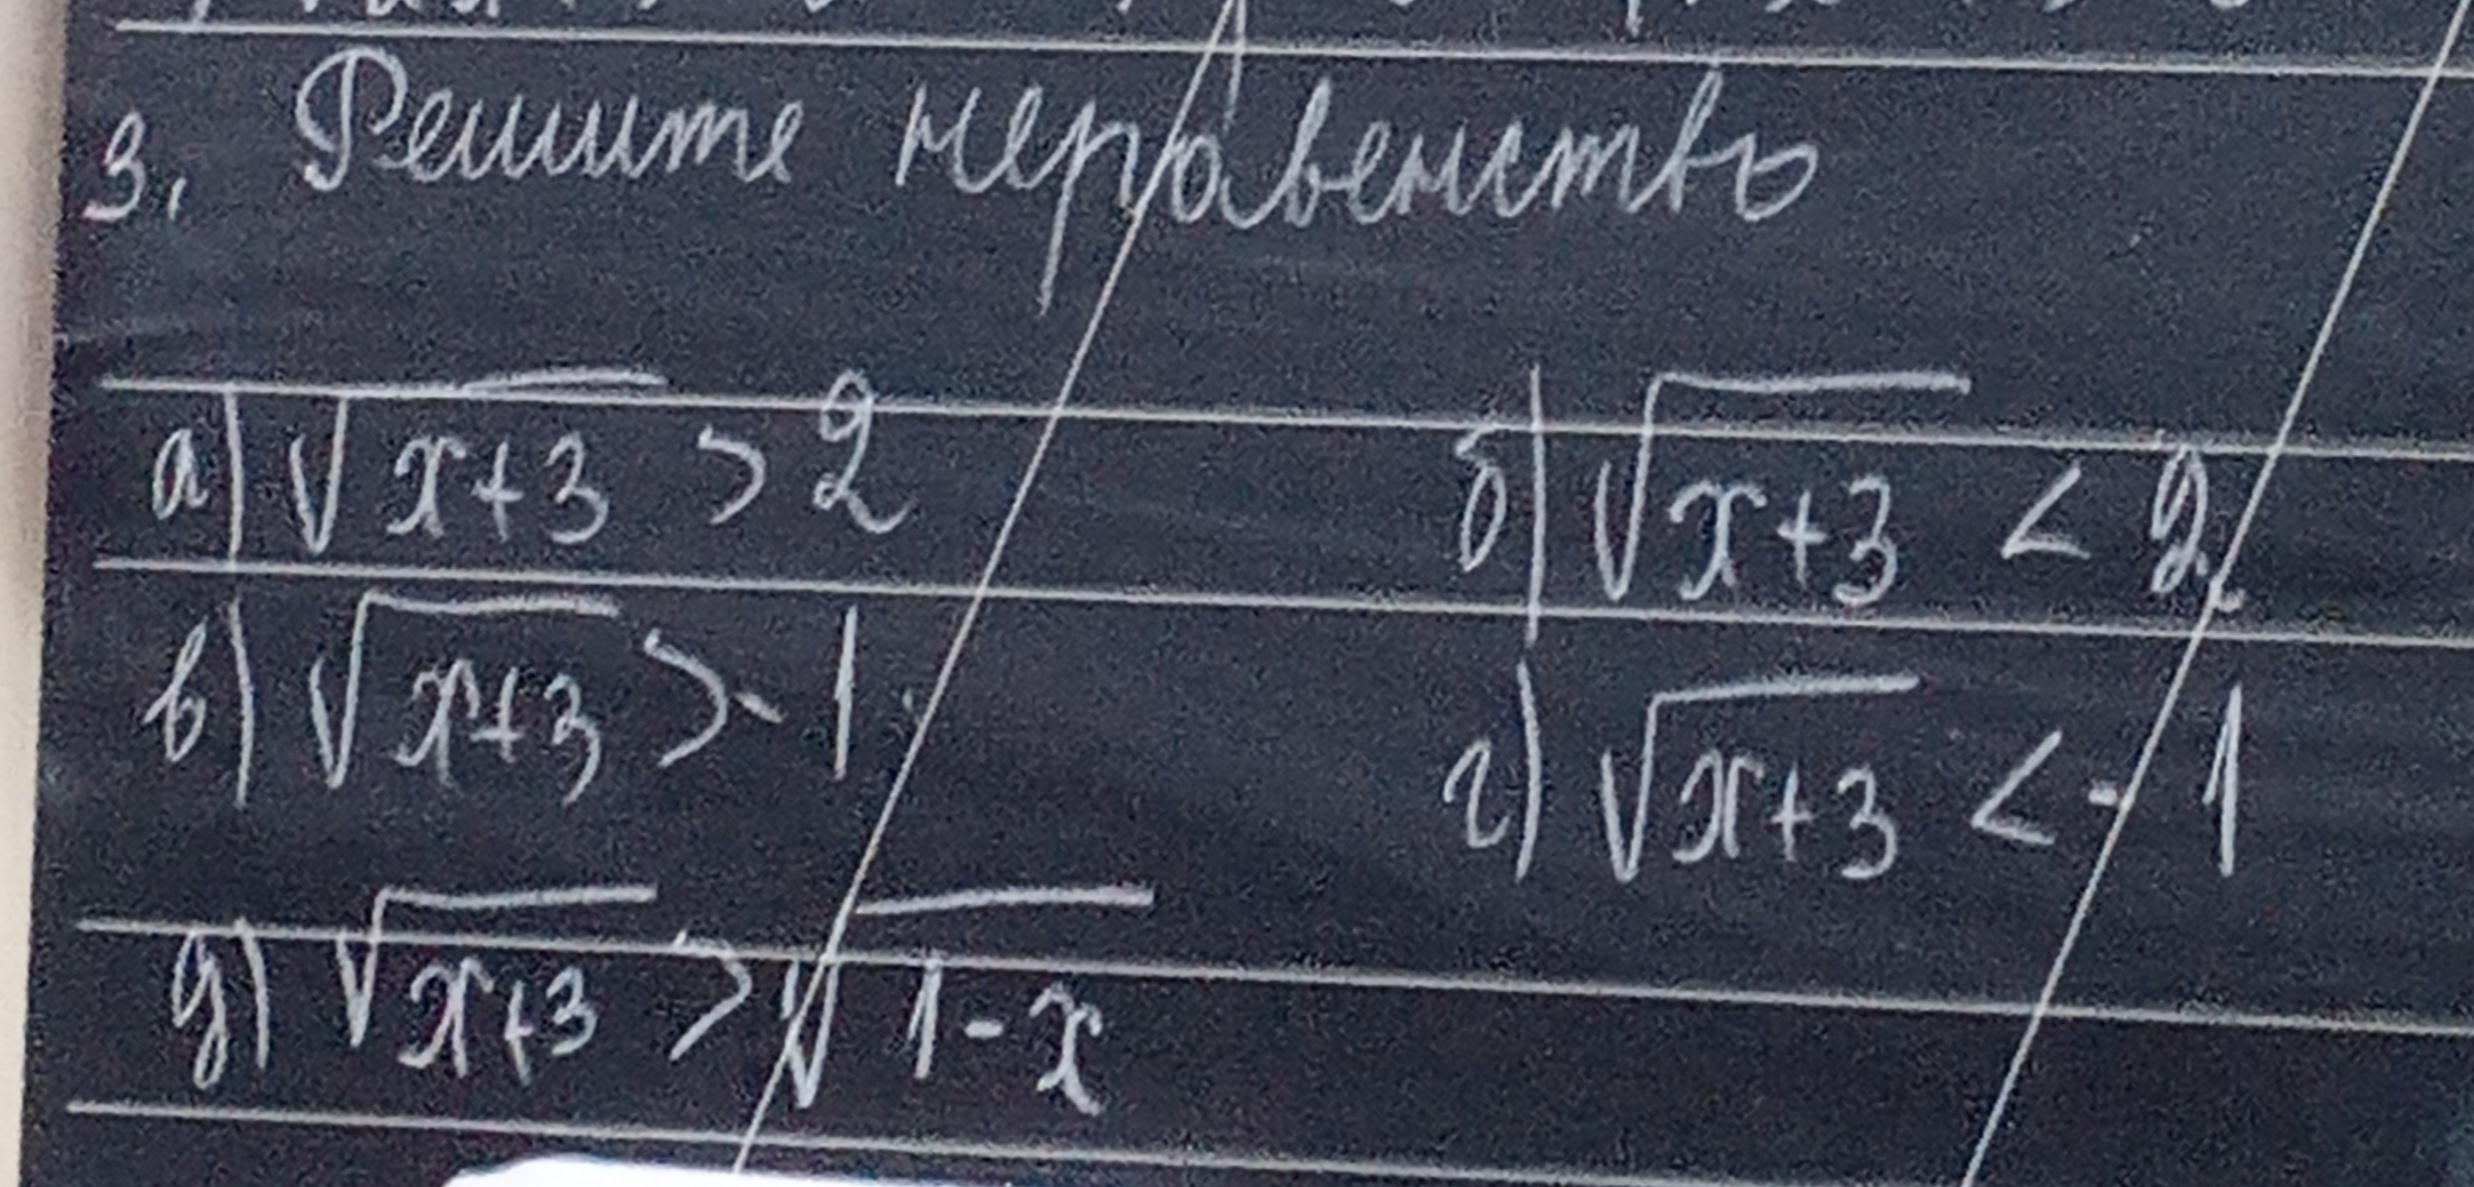 3. Решите неравенство
а) √x+3 > 2 б) √x+3 < 2
в) √x+3 > -1 г) √x+3 < -1
д) √x+3 > √1-x